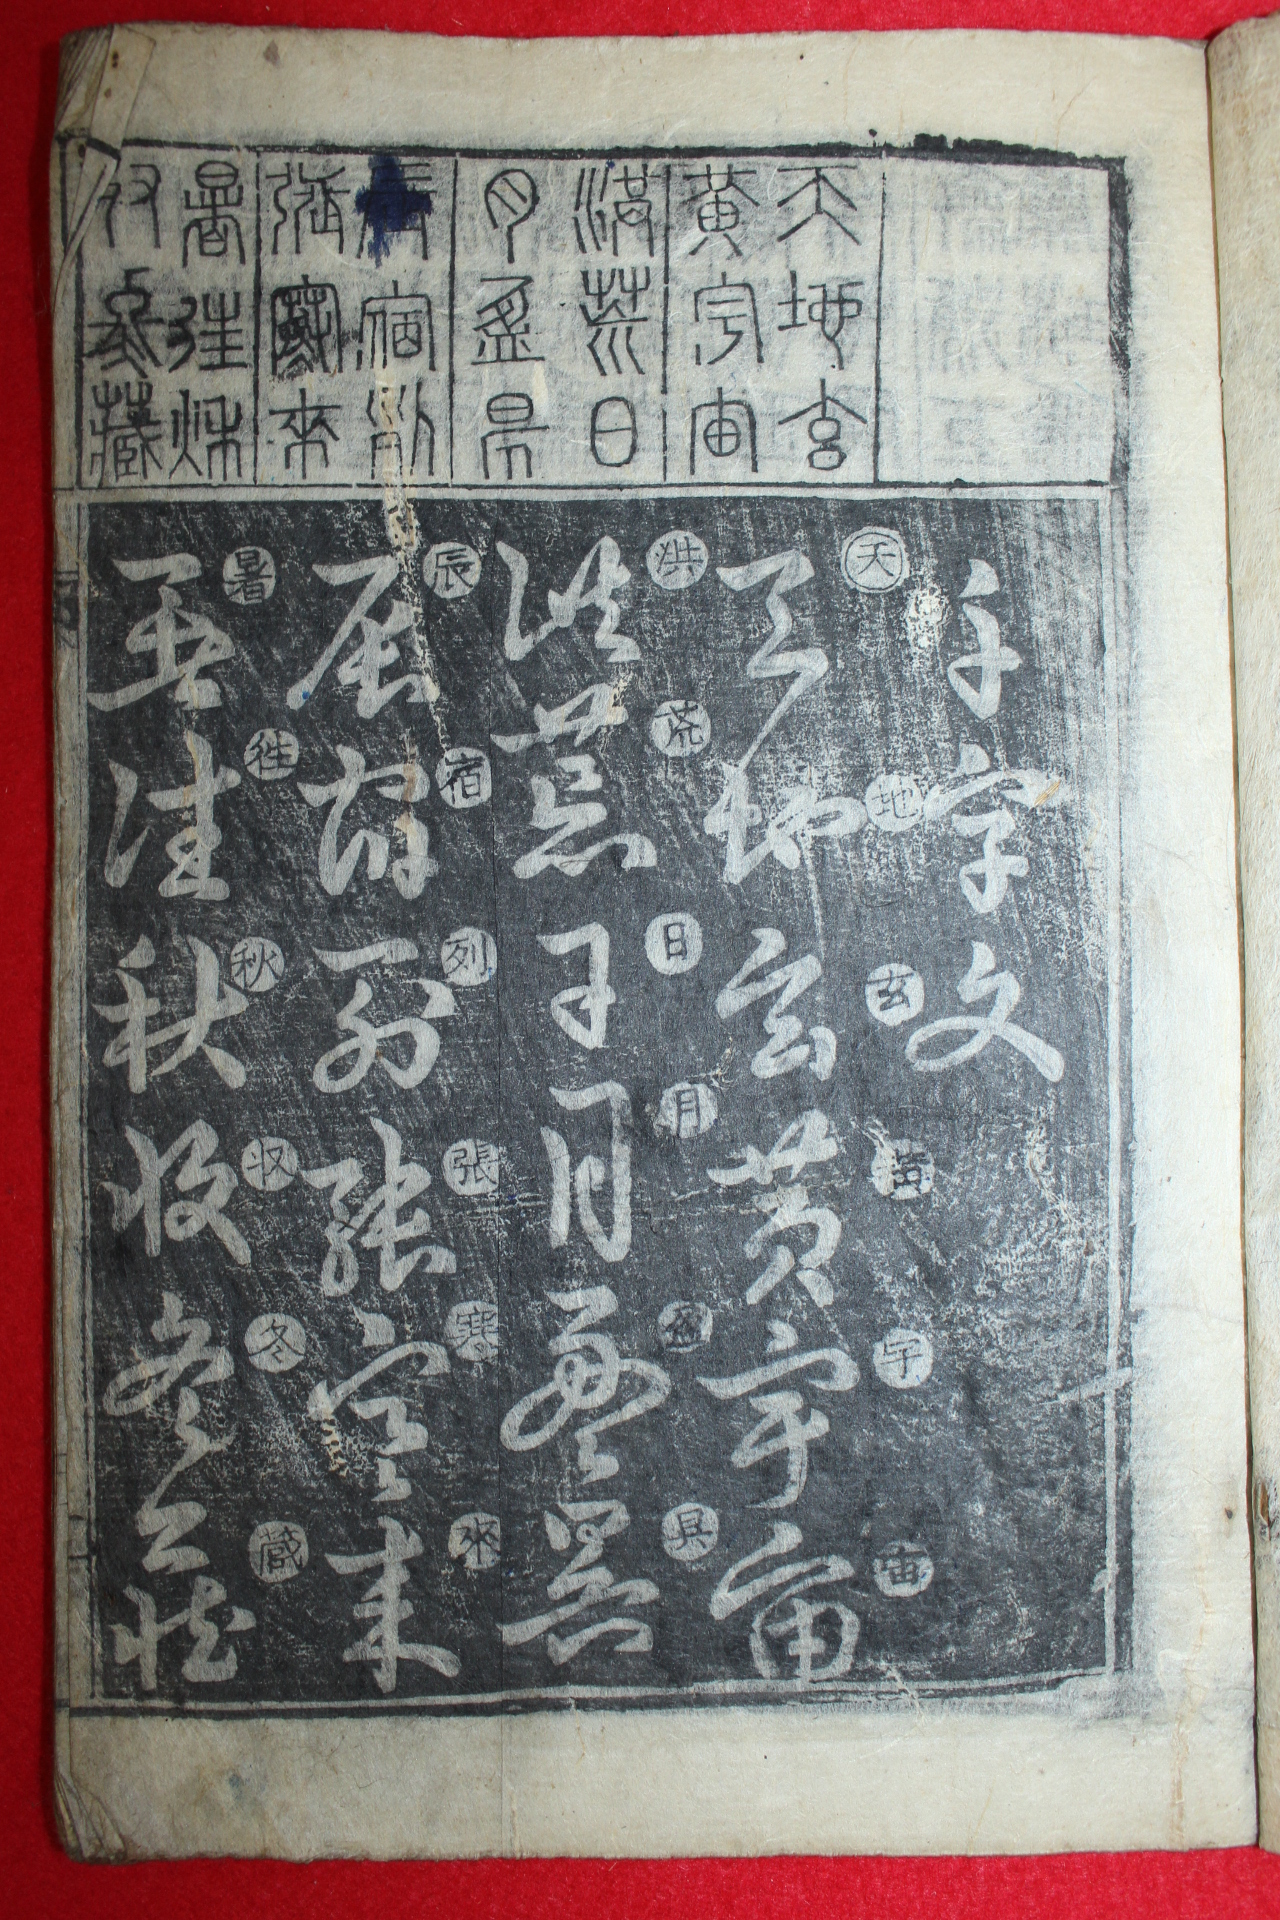 天地玄
黃宇宙
洪荒日
月盈昃
宿列
張寒來
暑往秋
收冬藏
千字文
天地玄黃宇宙
天地玄黃宇宙
洪荒日月盈昃
洪荒日月盈昃
辰宿列張寒來
辰宿列張寒來
暑往秋収冬藏
暑往秋收冬藏